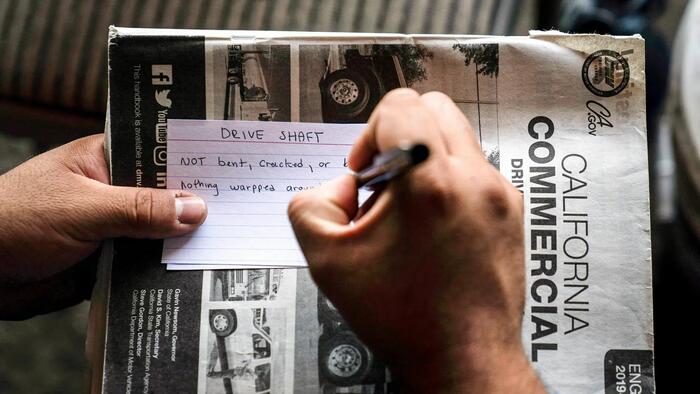 DRIVE SHAFT
NOT bent, cracked, or
Nothing warpped
CALIFORNIA
COMMERCIAL
CA
.GOV
ENG
2019
This handbook is available at dmv
YouTube
in
Gavin Newsom, Governor
State of California
David S. Kim, Secretary
California State Transportation Agency
Steve Gordon, Director
California Department of Motor Vehicles